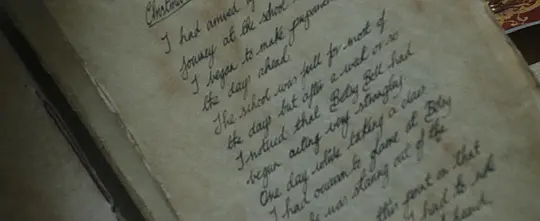 Christmas
I had arrived
journey at the school
I began to make
the days ahead.
The school was full for most of
the days but after a week or so
I noticed that Betsy Bell had
begun acting very strangely.
One day whilst taking a class
I had occasion to glance at Betsy
he was staring out of the
this point on that
I had to